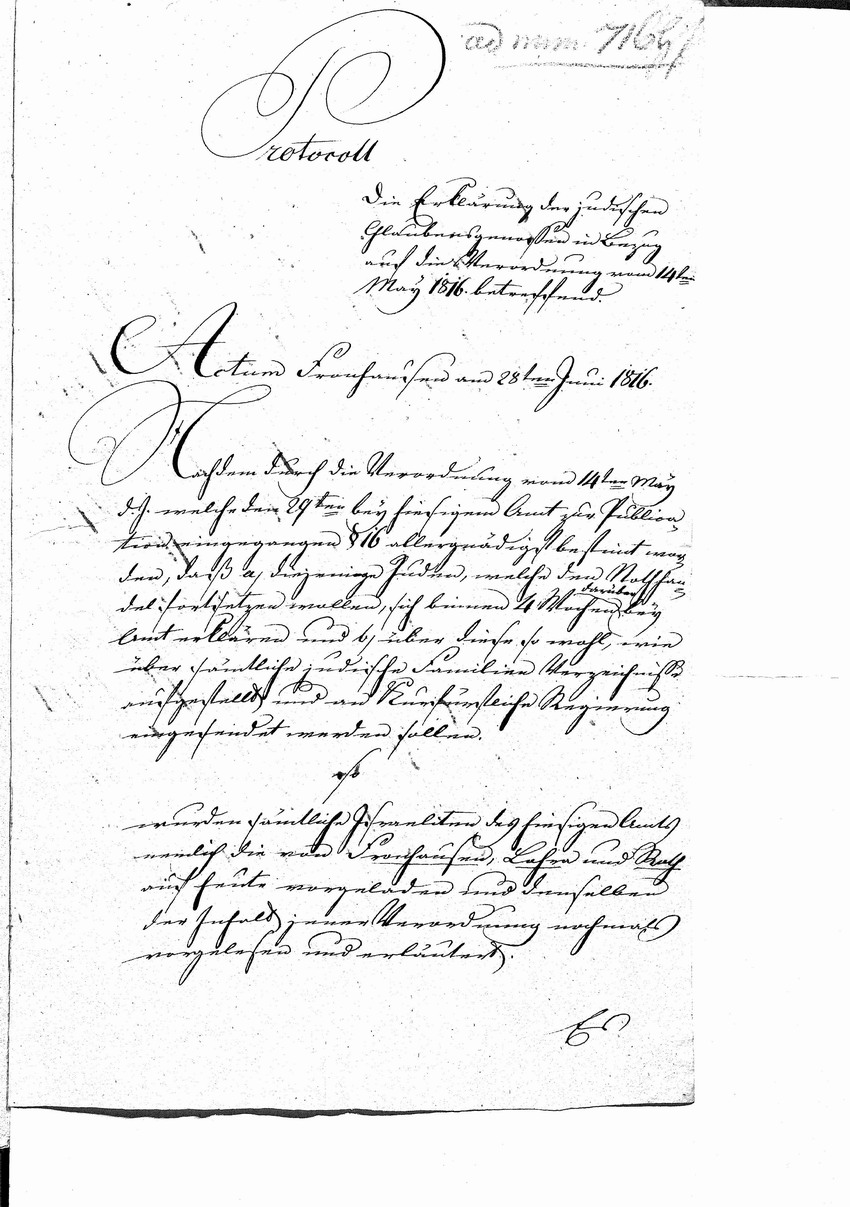 ad num. 716
Protocoll
Die Erklärung der judischen
Glaubensgenossen in Bezug
auf die Verordnung vom 14ten
May 1816. betreffend.
Actum Fronhausen am 28ten Juni 1816.
Nachdem durch die Verordnung vom 14ten May
d. J. welche den 29ten bey hiesigem Amt zur Publica-
tion eingegangen § 16 allergnädigst bestimt wor-
den, daß a, diejenige Juden, welche den Nothhan-
del fortsetzen wollen, sich binnen 4 Wochen darüber bey
Amt erklären und b, über diese so wohl, wie
über sämtliche judische Familien Verzeichnisse
aufgestellt und an Kurfürstliche Regierung
eingesendet werden sollen.
so
wurden sämtliche Israeliten des hiesigen Amts
nemlich die von Fronhausen, Lohra und Roth
auf heute vorgeladen und denselben
der Inhalt jener Verordnung nochmals
vorgelesen und erläutert.
Es